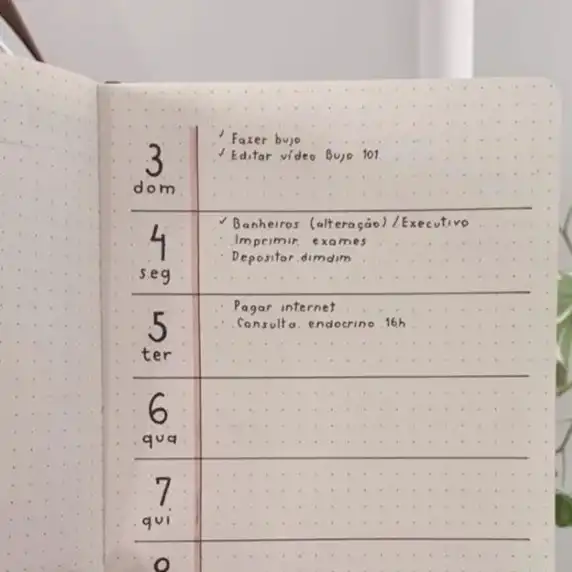 3
dom
✓ Fazer bujo
✓ Editar vídeo Bujo 101
4
seg
✓ Banheiros (alteração) / Executivo
· Imprimir exames
· Depositar dimdim
5
ter
· Pagar internet
· Consulta endocrino 16h
6
qua
7
qui